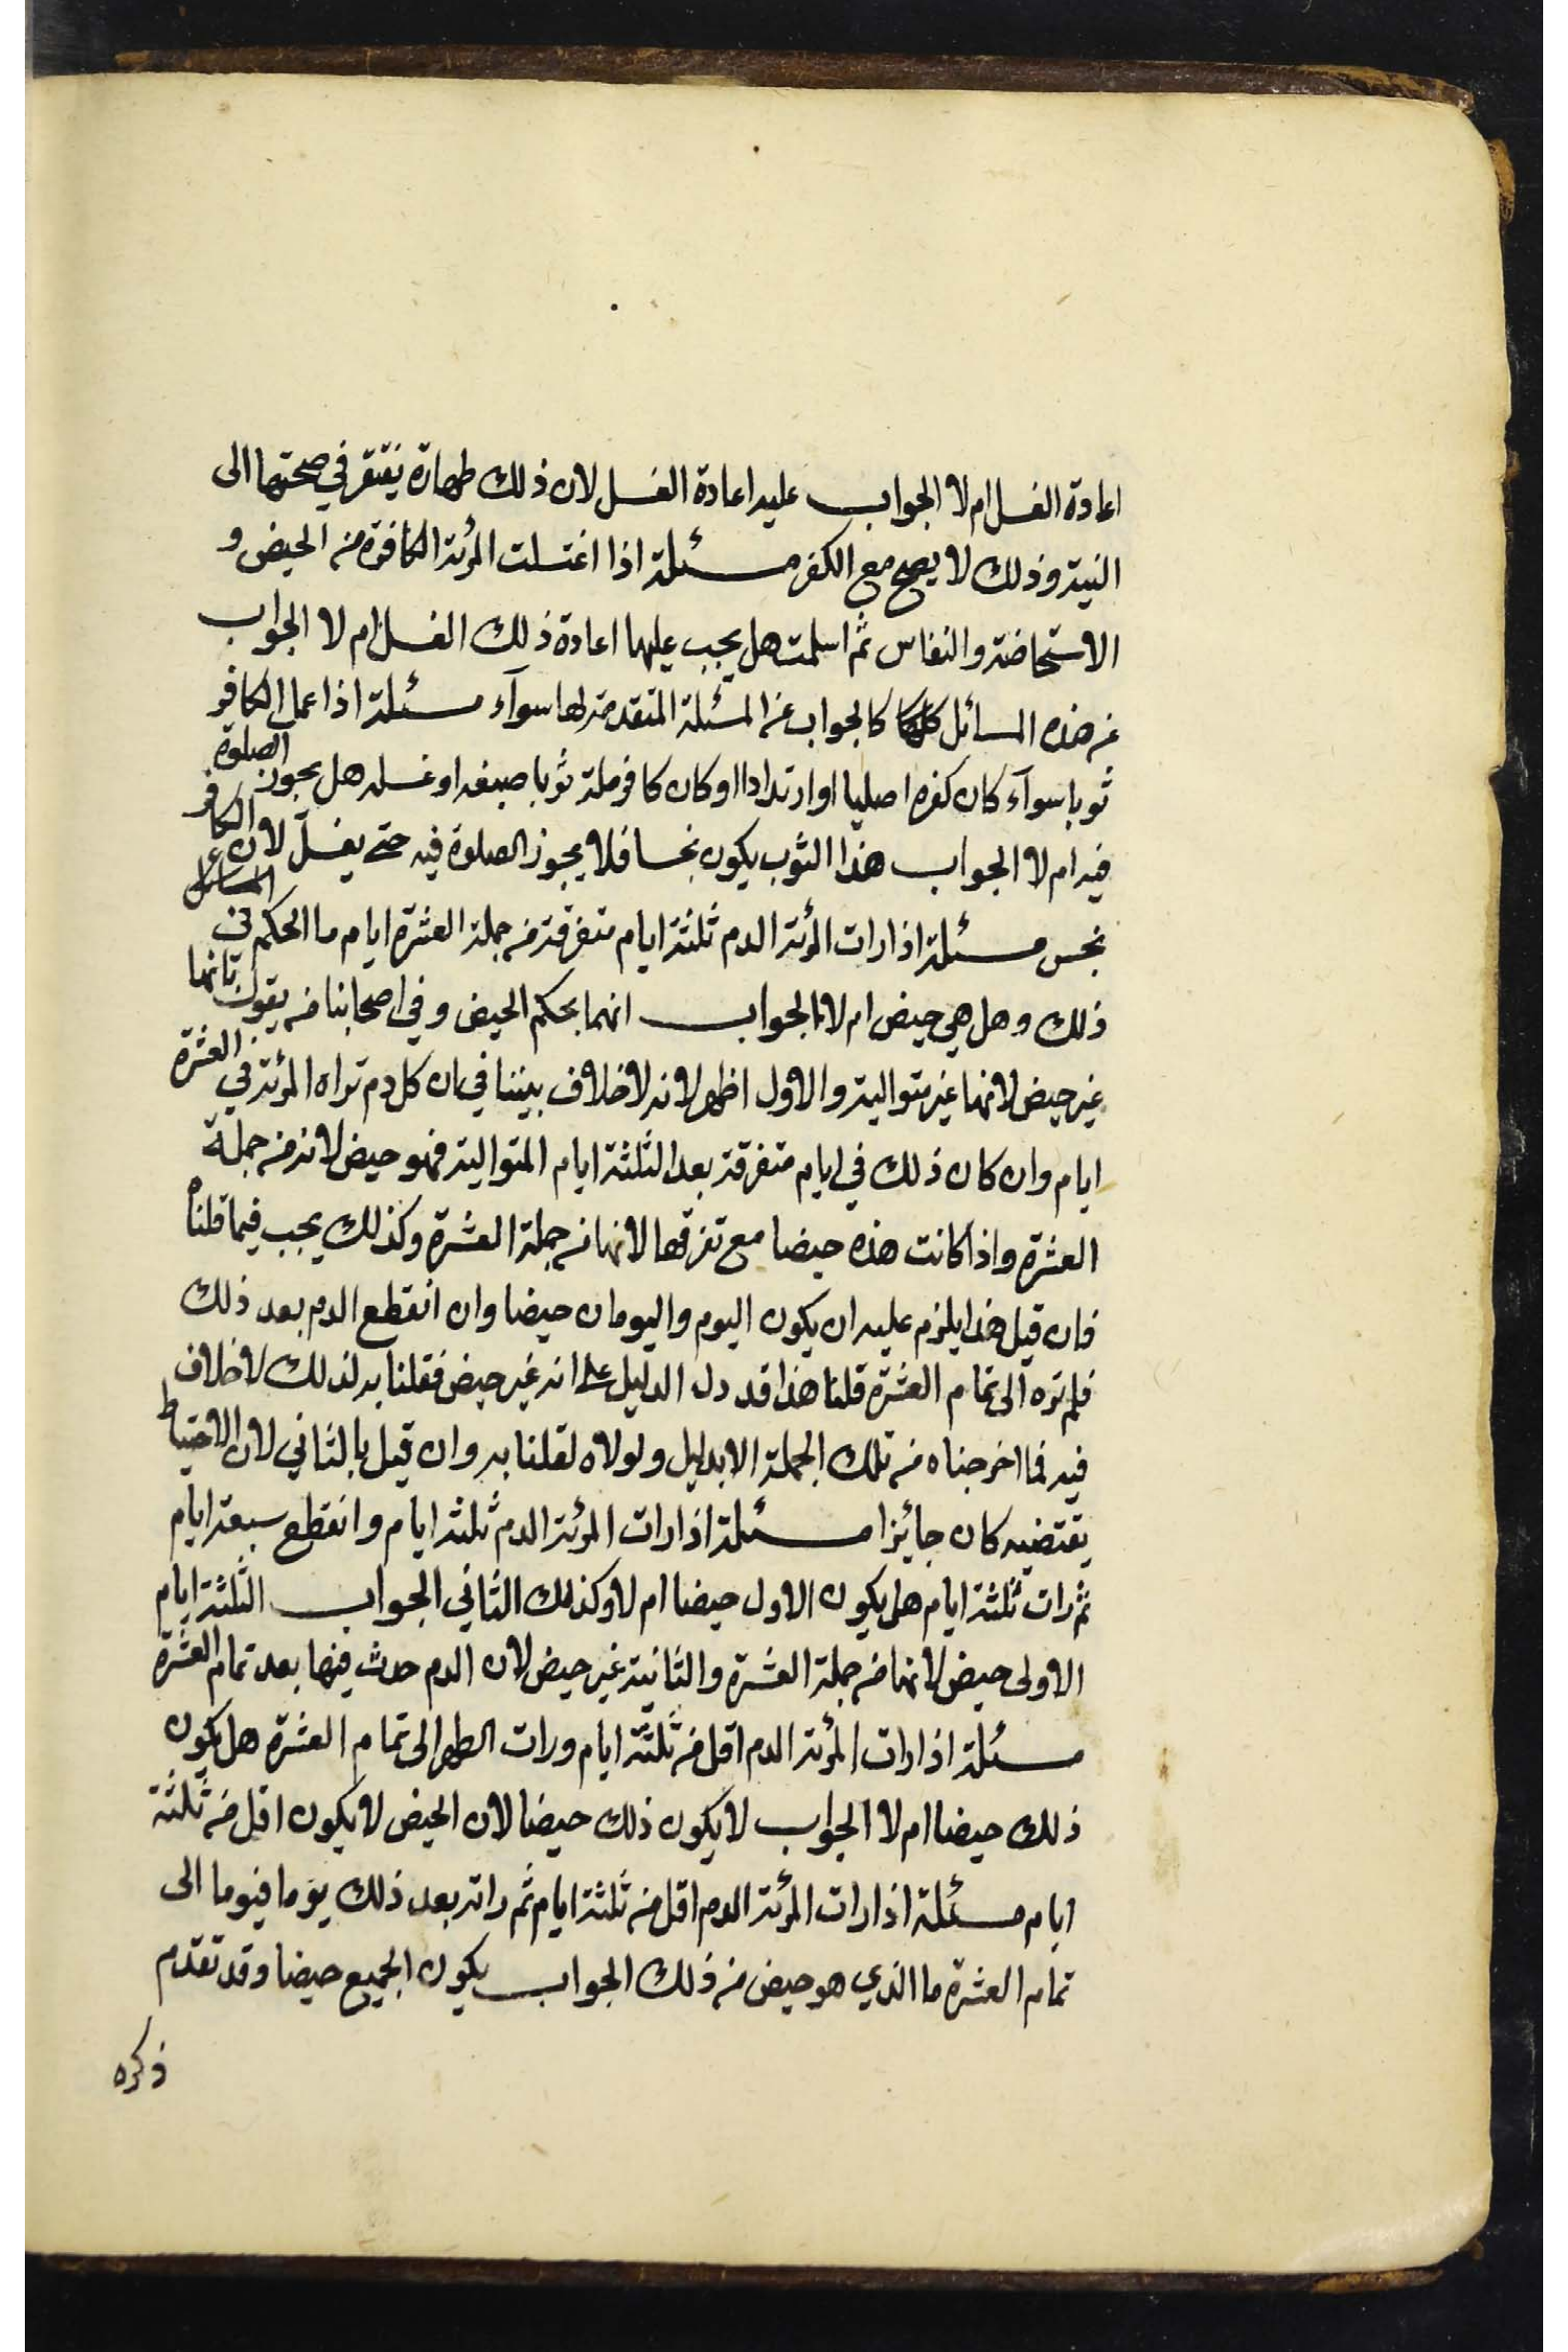 اعادة الغسل ام لا الجواب عليه اعادة الغسل لان ذلك طهارة يفتقر في صحتها الى
النية وذلك لا يصح مع الكفر مسئلة اذا اغتسلت المرئة الكافرة من الحيض و
الاستحاضة والنفاس ثم اسلمت هل يجب عليها اعادة ذلك الغسل ام لا الجواب
عن هذه المسائل كلها كالجواب عن المسئلة المتقدمة لها سوآء مسئلة اذا عمل الكافر
ثوبا سوآء كان كفره اصليا او ارتدادا او كان كافر ملة ثوبا صبغه او غسله هل يجوز الصلوة
فيه ام لا الجواب هذا الثوب يكون نجسا فلا يجوز الصلوة فيه حتى يغسل لان الكافر
نجس مسئلة اذا رات المرئة الدم ثلثة ايام متفرقة من جملة العشرة ايام ما الحكم في
ذلك وهل هي حيض ام لا الجواب انهما بحكم الحيض وفي اصحابنا من يقول بانها
غير حيض لانها غير متوالية والاول اظهر لانه لا خلاف بيننا في ان كل دم تراه المرئة في العشرة
ايام وان كان ذلك في ايام متفرقة بعد الثلثة ايام المتوالية فهو حيض لانه من جملة
العشرة واذا كانت هذه حيضا مع تفرقها لانها من جملة العشرة وكذلك يجب فيما قلناه
فان قيل هذا يلزم عليه ان يكون اليوم واليومان حيضا وان انقطع الدم بعد ذلك
فلم تره الى تمام العشرة قلنا هذا قد دل الدليل على انه غير حيض فقلنا به لذلك لا خلاف
فيه فما اخرجناه من تلك الجملة الا بدليل ولولاه لقلنا به وان قيل بالثاني لان الاحتياط
يقتضيه كان جائزا مسئلة اذا رات المرئة الدم ثلثة ايام وانقطع سبعة ايام
ثم رات ثلثة ايام هل يكون الاول حيضا ام لا وكذلك الثاني الجواب الثلثة ايام
الاولى حيض لانها من جملة العشرة والثانية غير حيض لان الدم حدث فيها بعد تمام العشرة
مسئلة اذا رات المرئة الدم اقل من ثلثة ايام ورات الطهر الى تمام العشرة هل يكون
ذلك حيضا ام لا الجواب لا يكون ذلك حيضا لان الحيض لا يكون اقل من ثلثة
ايام مسئلة اذا رات المرئة الدم اقل من ثلثة ايام ثم راته بعد ذلك يوما فيوما الى
تمام العشرة ما الذي هو حيض من ذلك الجواب يكون الجميع حيضا وقد تقدم
ذكره